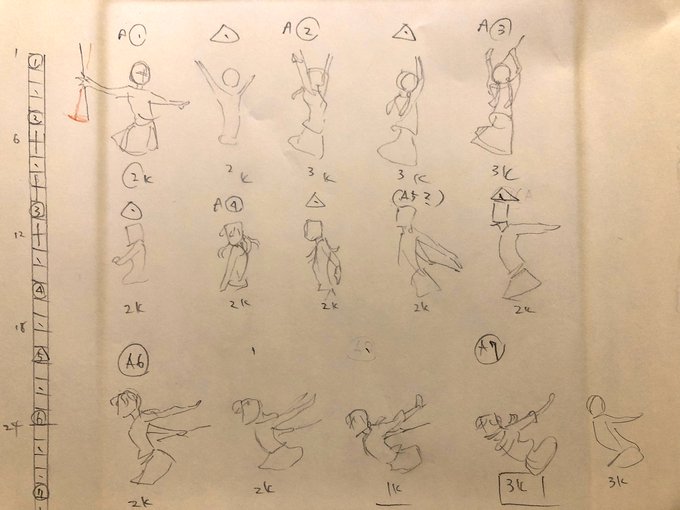 A① A② A③
2K 2K 3K 3K 3K
A④ (A5?)
2K 2K 2K 2K 2K
A6 A7
2K 2K 1K 3K 3K
1
6
12
18
24
①
②
③
④